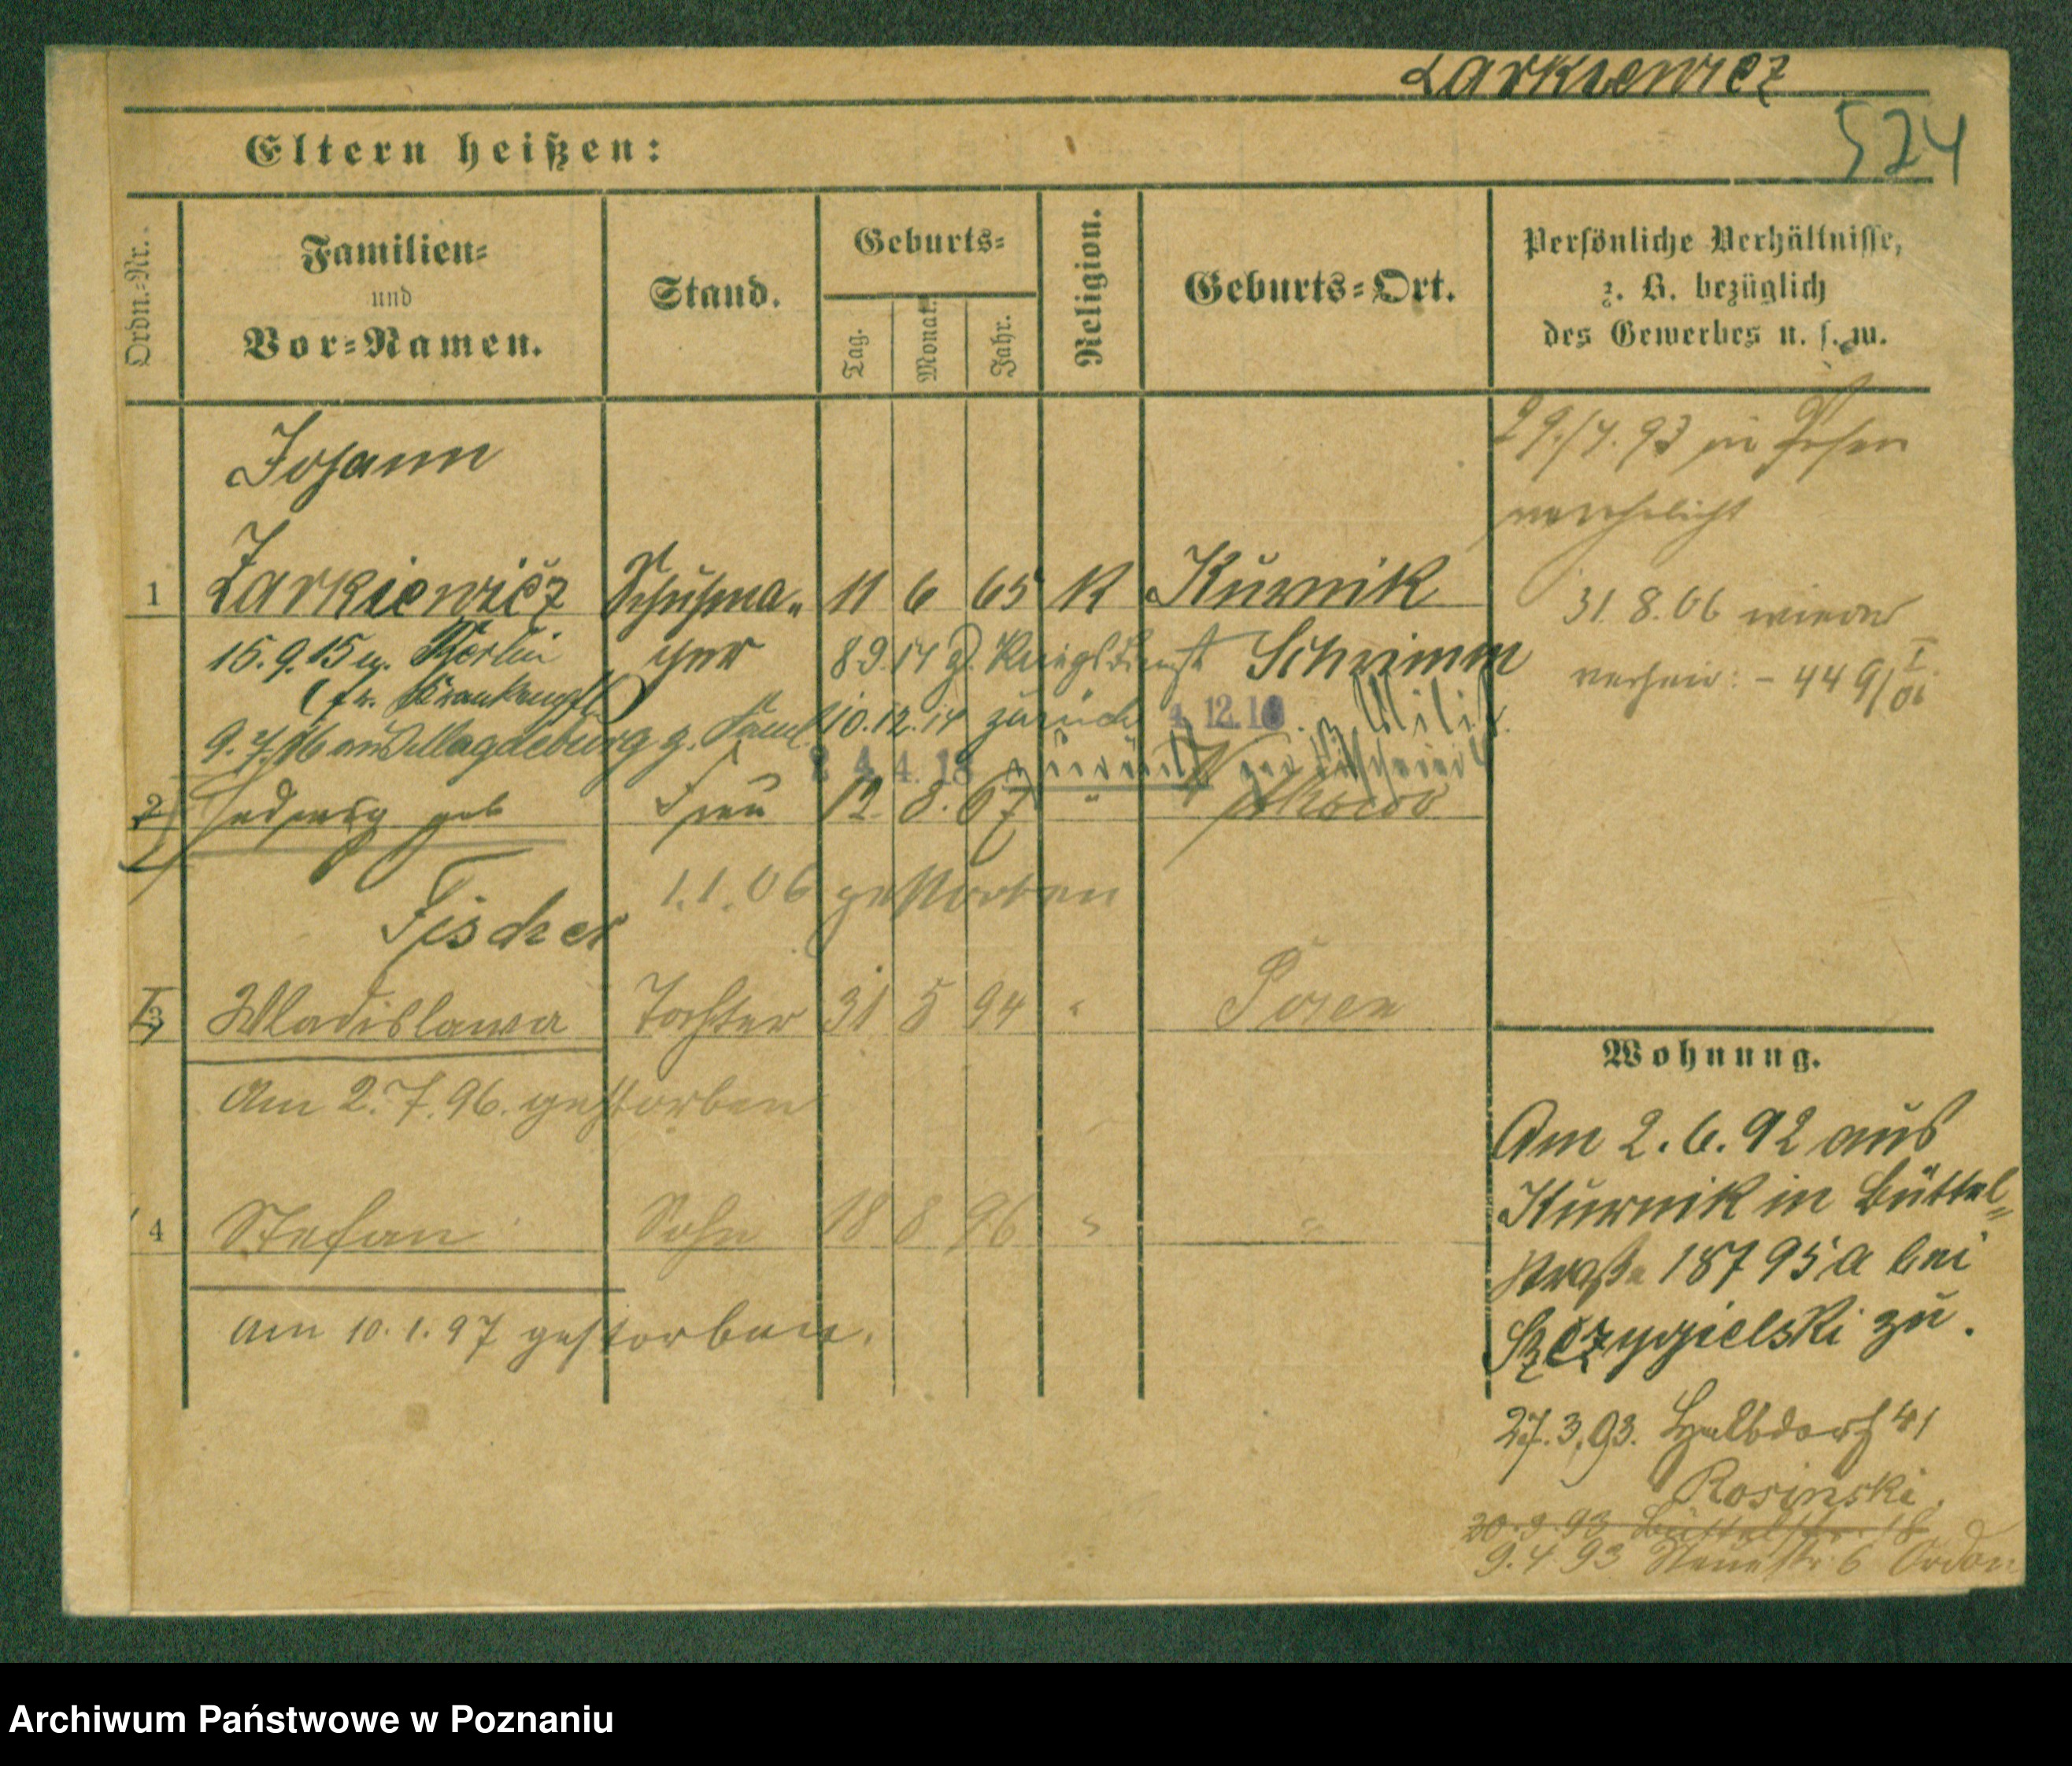 Żarkiewicz
524
Eltern heißen:
Ordn.-Nr.
Familien-
und
Vor-Namen.
Stand.
Geburts-
Tag.
Monat.
Jahr.
Religion.
Geburts-Ort.
Persönliche Verhältnisse,
z. B. bezüglich
des Gewerbes u. s. w.
Johann
1 Żarkiewicz Schuhma- 11 6 65 K Kurnik
cher
Schrimm
15.9.15 n. Berlin
8 9.14 z. Kriegsdienst
10.12.14 zurück
4.12.16 z. Milit.
9.7.16 aus Magdeburg z. Faml.
24.4.18 zurück
2 Hedwig geb Frau 12. 8. 67 "
Fischer
1.1.06 gestorben
3 Wladislawa Tochter 31 5 94 " Posen
Am 2.7.96. gestorben
4 Stefan Sohn 18 8 96 " "
am 10.1.97 gestorben.
29./4.93 in Posen
verehelicht
31.8.06 wieder
verheir: - 449/I 06
Wohnung.
Am 2.6.92 aus
Kurnik in Büttel-
straße 18 795a bei
Szczygielski zu.
27.3.93. Halbdorf 41
Rosinski.
30.3.93 Büttelstr. 18
9.4 93 Neuestr. 6 Ordon
Archiwum Państwowe w Poznaniu